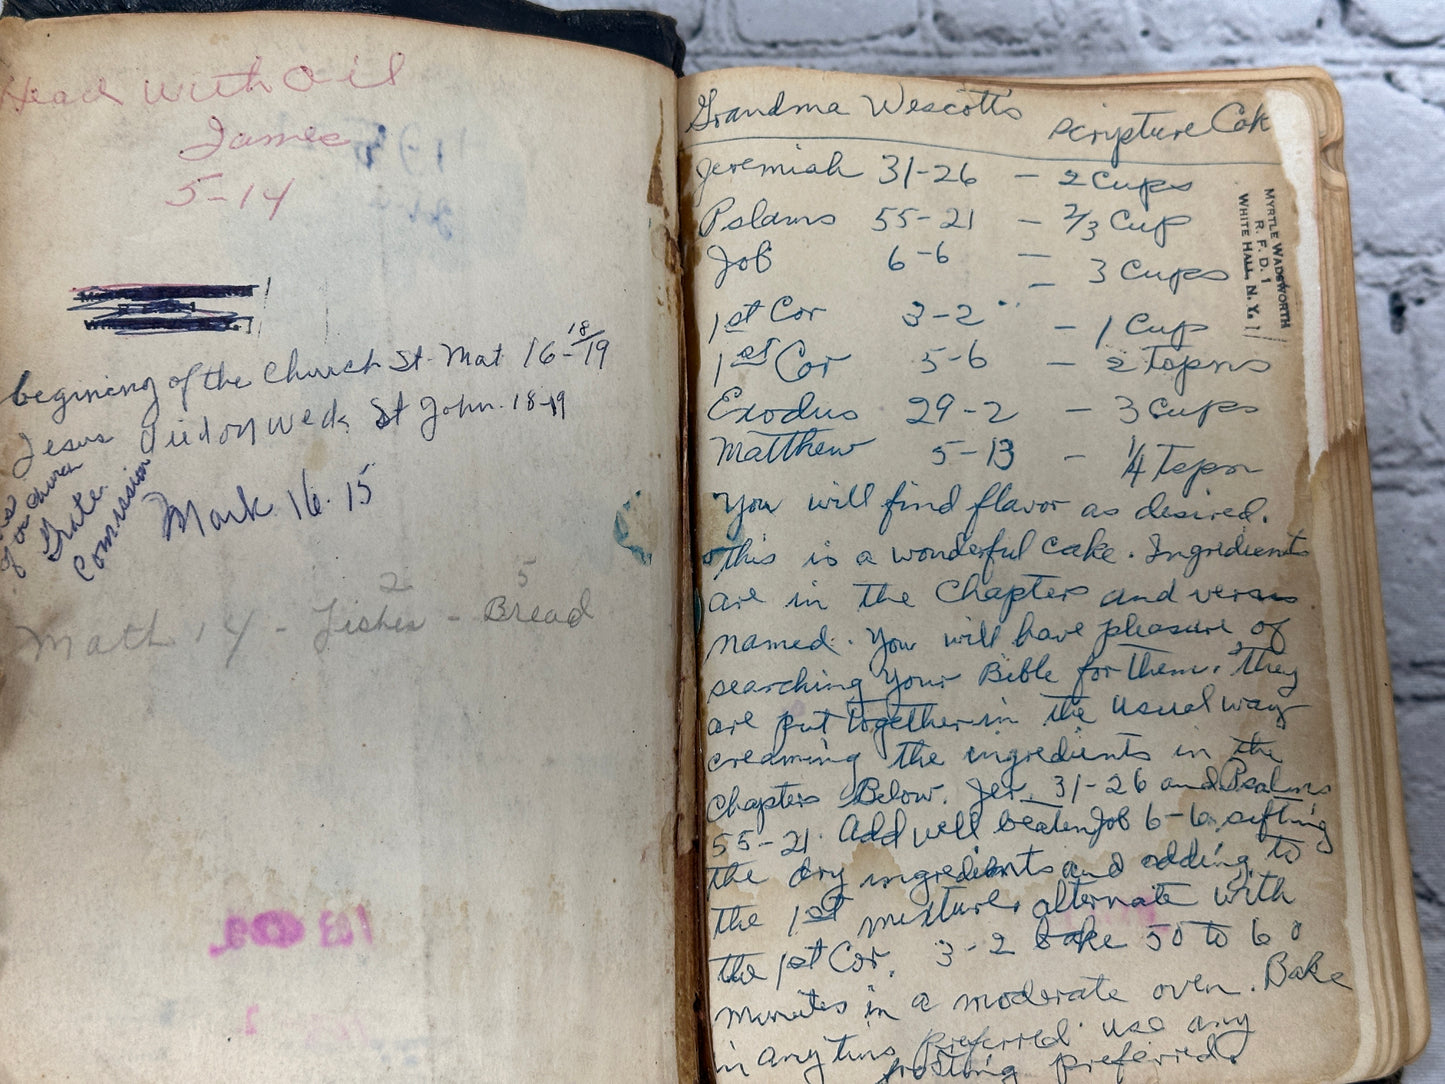 Head with Oil
James
5-14
begining of the Church St. Mat 16-18/19
Jesus St John. 18-19
of our church
Grate
Commission
Mark 16-15
2 5
Math 14 - Fishes - Bread
Grandma Wescott's Scripture Cak
Jeremiah 31-26 - 2 Cups
Pslams 55-21 - 2/3 Cup
Job 6-6 - - 3 Cups
1st Cor 3-2 - 1 Cup
1st Cor 5-6 - 2 Tspns
Exodus 29-2 - 3 Cups
Matthew 5-13 - 1/4 Tspn
You will find flavor as desired.
this is a wonderful cake. Ingredients
are in the Chapters and verses
named. You will have pleasure of
searching your Bible for them. They
are put together in the usual way
creaming the ingredients in the
Chapters Below. Jer. 31-26 and Psalms
55-21. Add well beaten Job 6-6. sifting
the dry ingredients and adding to
the 1st mixture, alternate with
the 1st Cor. 3-2 bake 50 to 60
minutes in a moderate oven. Bake
in any tins preferred use any
frosting preferred.
MYRTLE WADSWORTH
R. F. D. 1
WHITE HALL, N. Y.